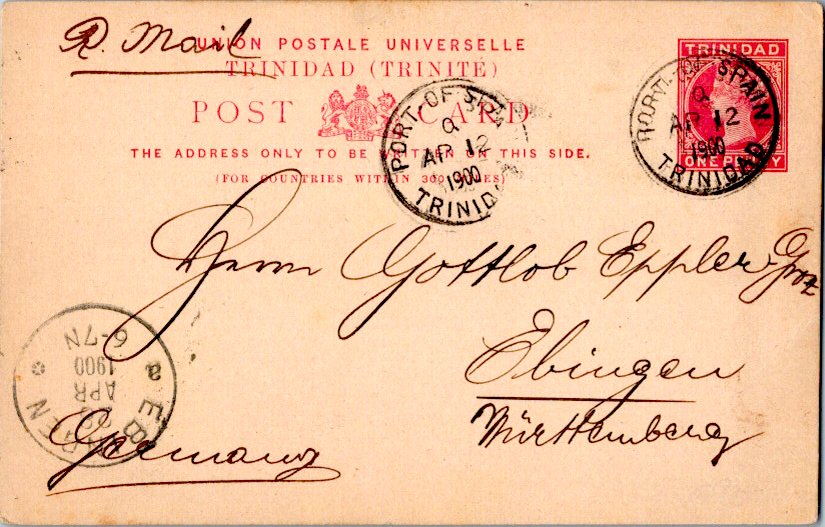 R. Mail
UNION POSTALE UNIVERSELLE
TRINIDAD (TRINITÉ)
POST CARD
THE ADDRESS ONLY TO BE WRITTEN ON THIS SIDE.
(FOR COUNTRIES WITHIN 300 MILES)
TRINIDAD
ONE PENNY
PORT-OF-SPAIN
AP 12
1900
TRINIDAD
PORT-OF-SPAIN
AP 12
1900
TRINIDAD
Herrn Gottlob Eppler Groz
Ebingen
Württemberg
Germany
EBINGEN
APR
1900
6-7N